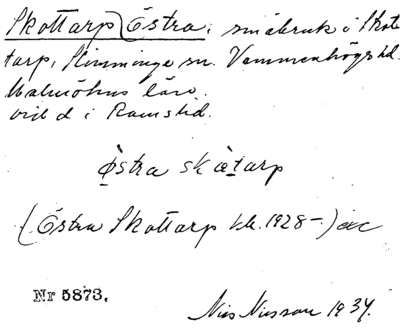 Skottarp, Östra; småbruk i Skot
tarp, Slimminge sn. Vemmenhögs hd.
Malmöhus län.
vid d i Ramshd.
östra skatarp
(Östra Skottarp kk. 1928-) ä
Nr 5873.
Nils Nilsson 1934.